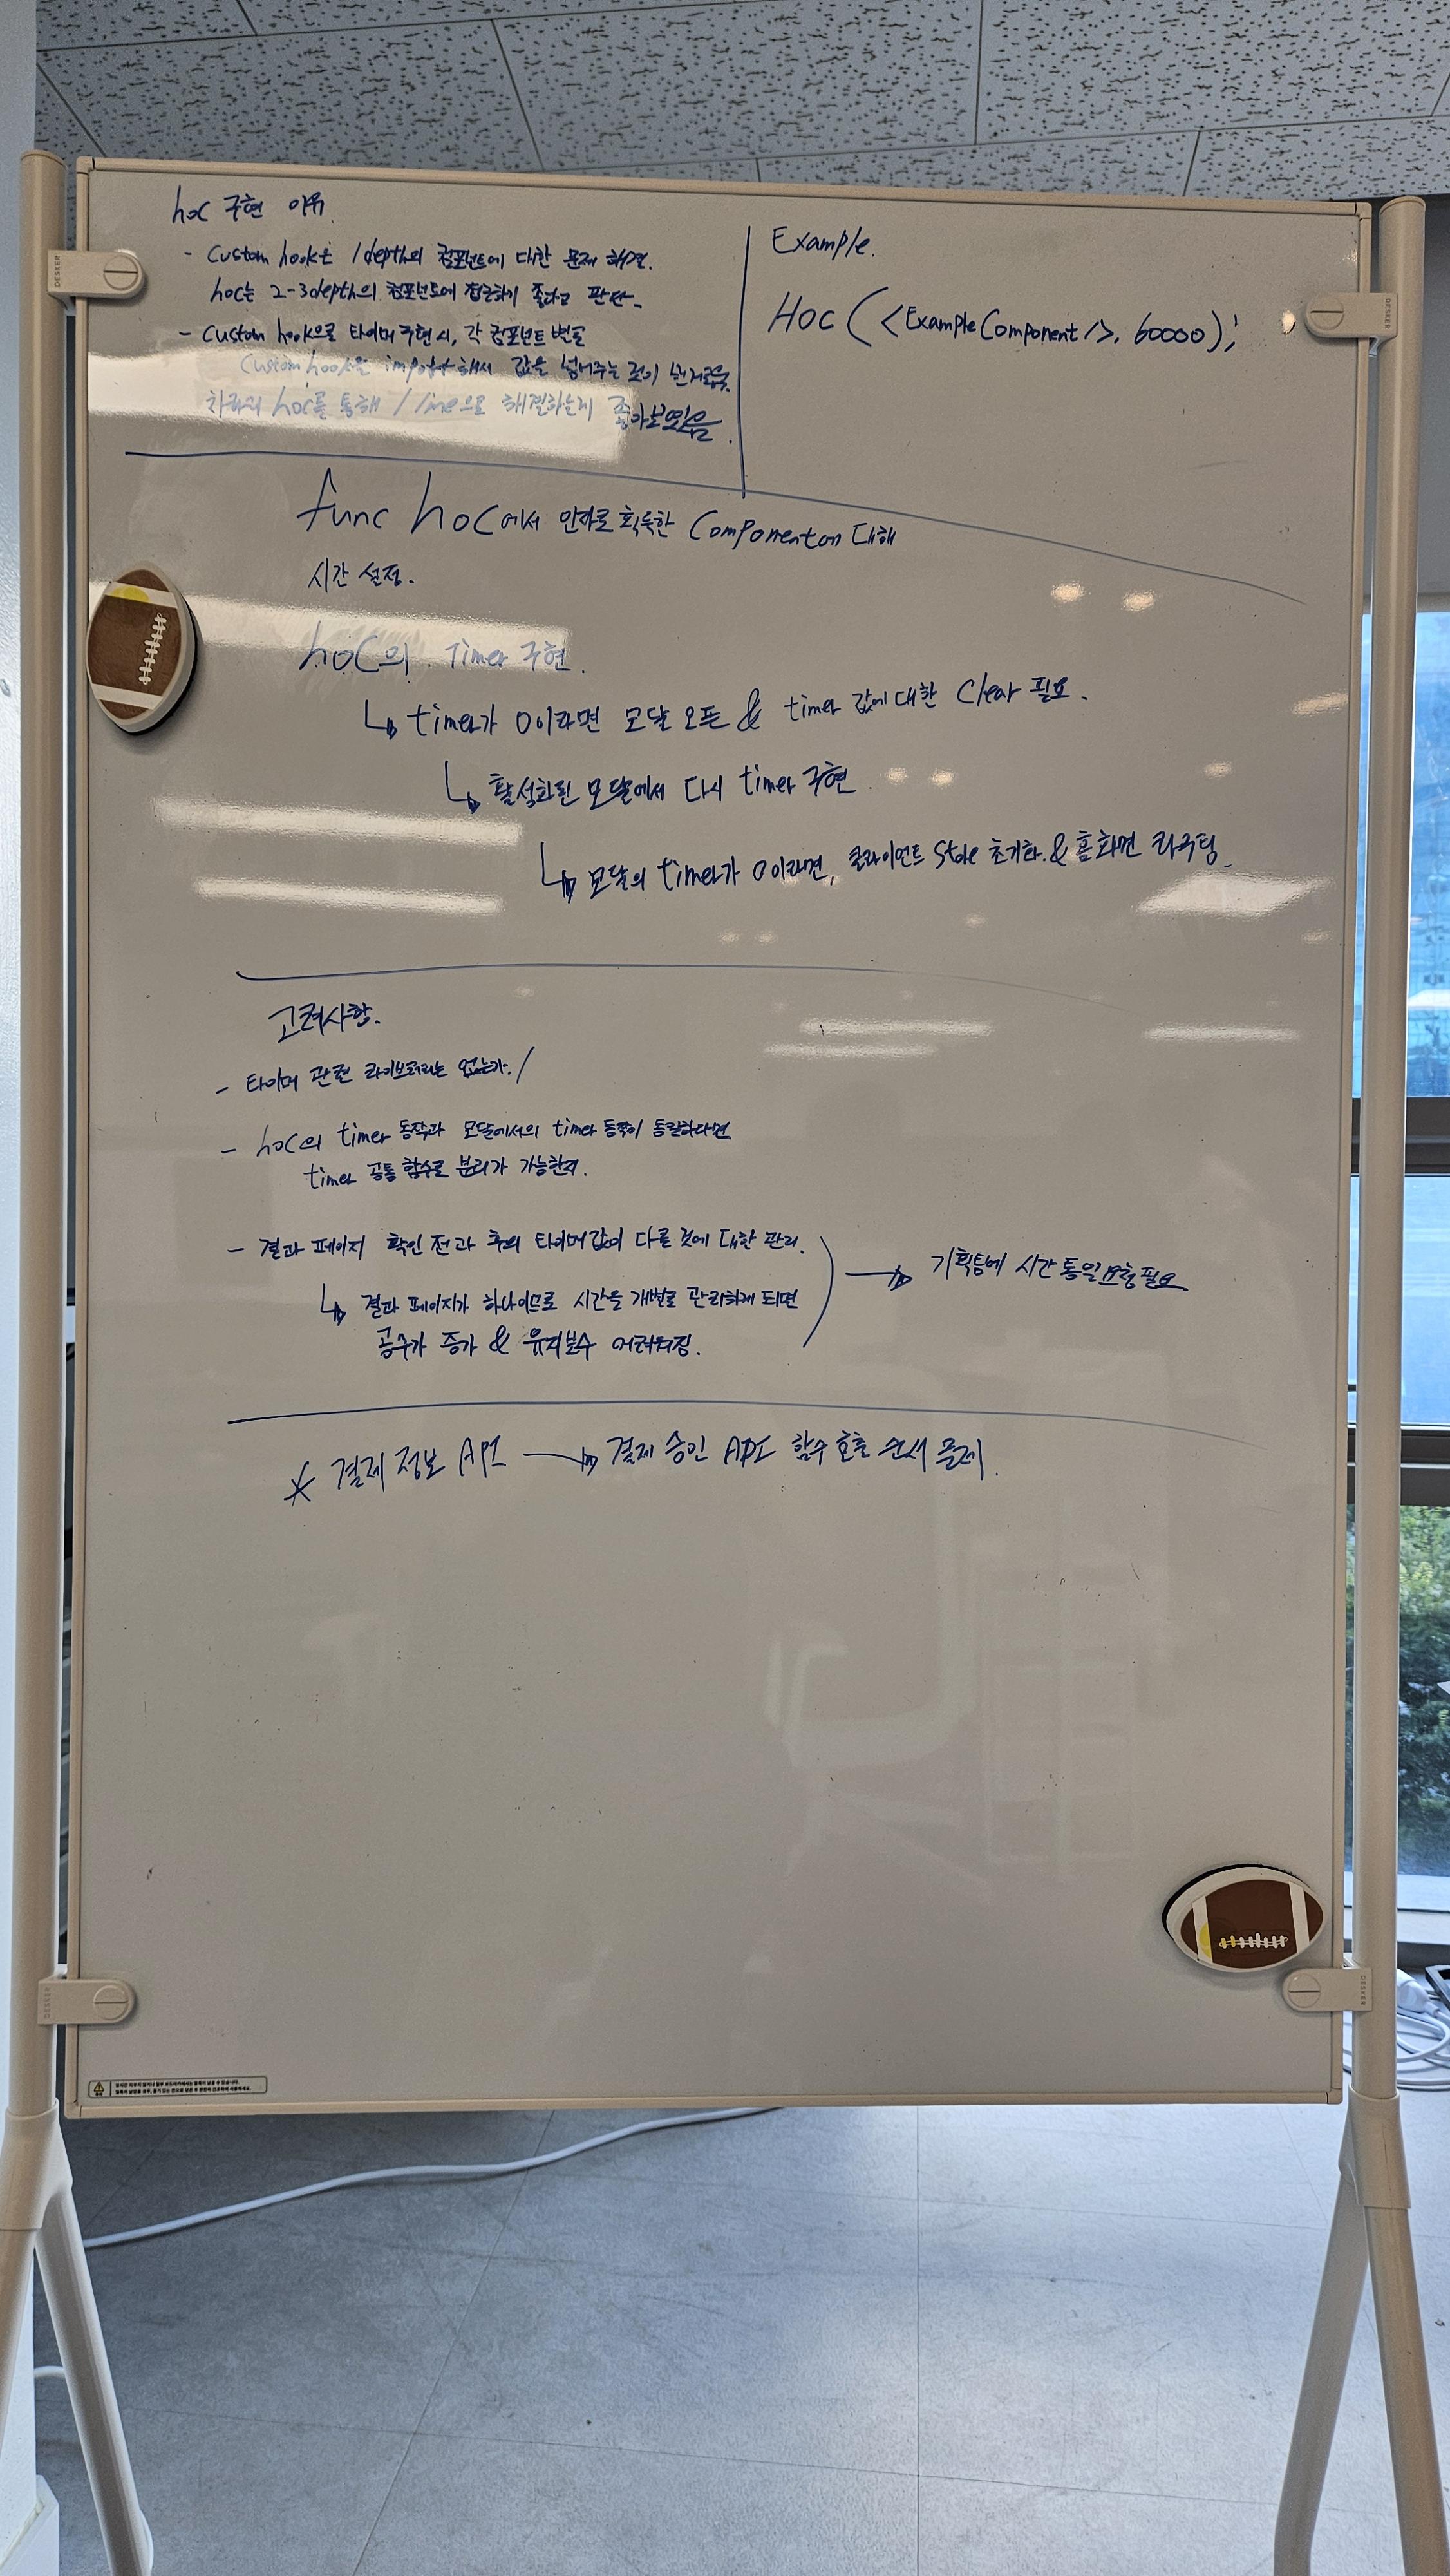 hoc 구현 이유.
- Custom hook은 1depth의 컴포넌트에 대한 문제 해결.
hoc는 2-3depth의 컴포넌트에 접근하기 좋다고 판단.
- Custom hook으로 타이머 구현 시, 각 컴포넌트 별로
Custom hook을 import해서 값을 넘겨주는 것이 번거로움.
차라리 hoc를 통해 1 line으로 해결하는게 좋아보였음.
Example.
HOC (<ExampleComponent />, 60000);
func hoc에서 인자로 획득한 Component에 대해
시간 설정.
hoc의 Timer 구현.
timer가 0이라면 모달 오픈 & timer 값에 대한 Clear 필요.
활성화된 모달에서 다시 timer 구현.
모달의 timer가 0이라면, 클라이언트 Store 초기화 & 홈화면 라우팅.
고려사항.
- 타이머 관련 라이브러리는 없는가.
- hoc의 timer 동작과 모달에서의 timer 동작이 동일하다면
timer 공통 함수로 분리가 가능한지.
- 결과 페이지 확인 전과 후의 타이머값이 다른 것에 대한 관리.
결과 페이지가 하나이므로 시간을 개별로 관리하게 되면
공수가 증가 & 유지보수 어려워짐.
기획팀에 시간 통일 요청 필요
* 결제 정보 API → 결제 승인 API 함수 호출 순서 문제.
DESKER
DESKER
DESKER
DESKER